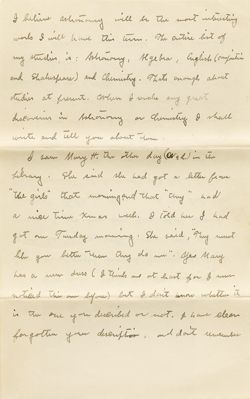 I believe Astronomy will be the most interesting
work I will have this term. The entire list of
my studies is: Astronomy, Algebra, English (
and Shakespeare) and Chemistry. That's enough about
studies at present. When I make any great
discoveries in Astronomy or Chemistry I shall
write and tell you about them.
I saw Mary H. the other day (Wed) in the
library. She said she had got a letter from
"the girls" that morning and that "Amy" had
a nice time Xmas week. I told her I had
got one Tuesday morning. She said, "They must
like you better than they do me". Yes Mary
has a new dress (I think so at least for I never
noticed this one before) but I don't know whether it
is the one you described or not. I have clean
forgotten your description, and don't remember